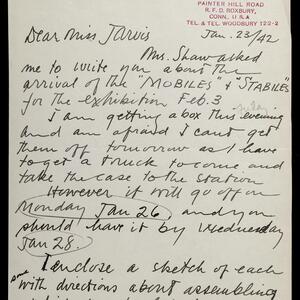 PAINTER HILL ROAD
R.F.D. ROXBURY,
CONN., U.S.A
TEL. & TEL. WOODBURY 122-2
Jan. 23/42
Dear Miss Jarvis
Mrs. Shaw asked
me to write you about the
arrival of the "MOBILES" & "STABILES"
for the exhibition Feb. 3
I am getting a box this evening
and am afraid I cant get
them off tomorrow as I have
to get a truck to come and
take the case to the station
However it will go off on
Monday Jan 26 and you
should have it by Wednesday
Jan 28.
I enclose a sketch of each
with directions about assembling